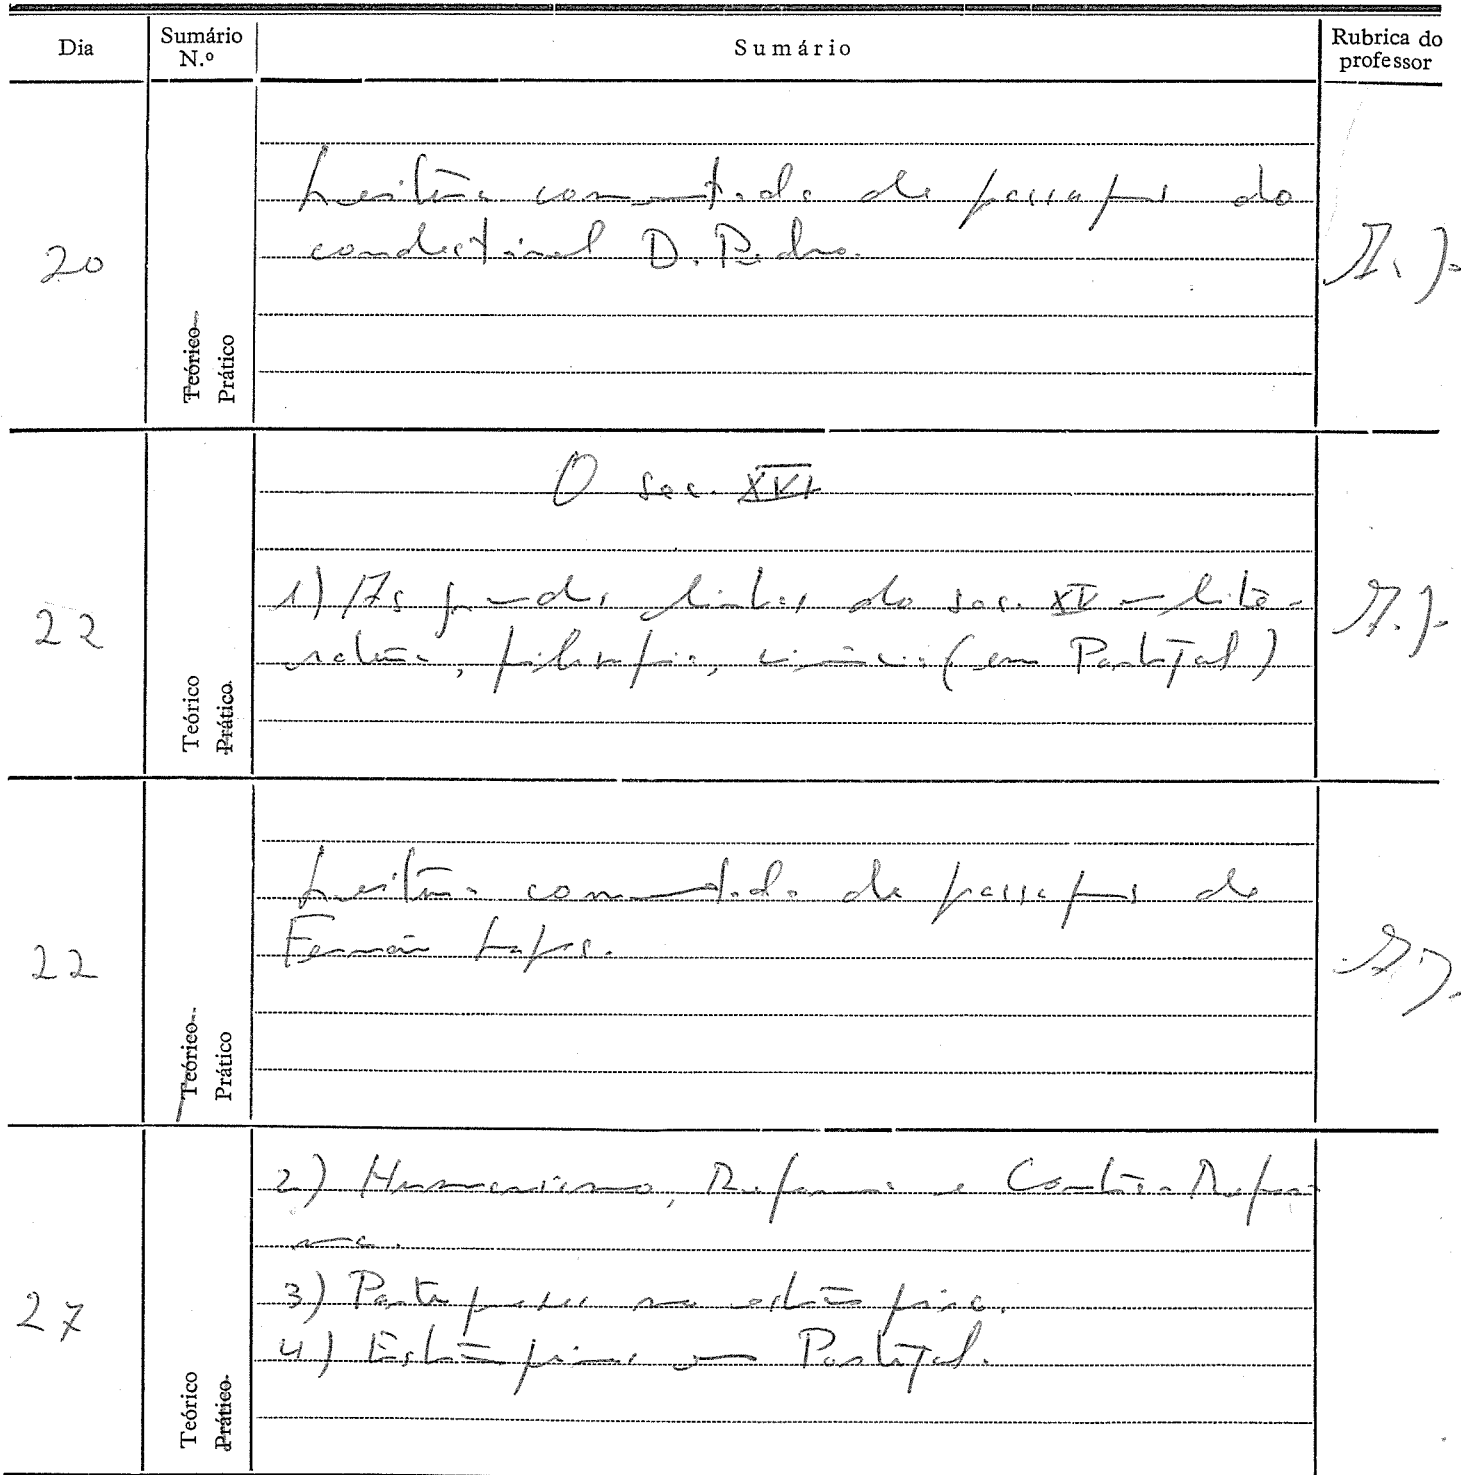 Dia
Sumário
N.º
Sumário
Rubrica do
professor
20
Teórico
Prático
Leitura comentada de passagens do
condestável D. Pedro.
22
Teórico
Prático
O sec. XVI
1) As grandes linhas do sec. XV – lite-
ratura, filosofia, ciência (em Portugal)
22
Teórico
Prático
Leitura comentada de passagens de
Fernão Lopes.
27
Teórico
Prático
2) Humanismo, Reforma e Contra-Refor-
ma.
3) Portugueses no estrangeiro.
4) Estrangeiros em Portugal.